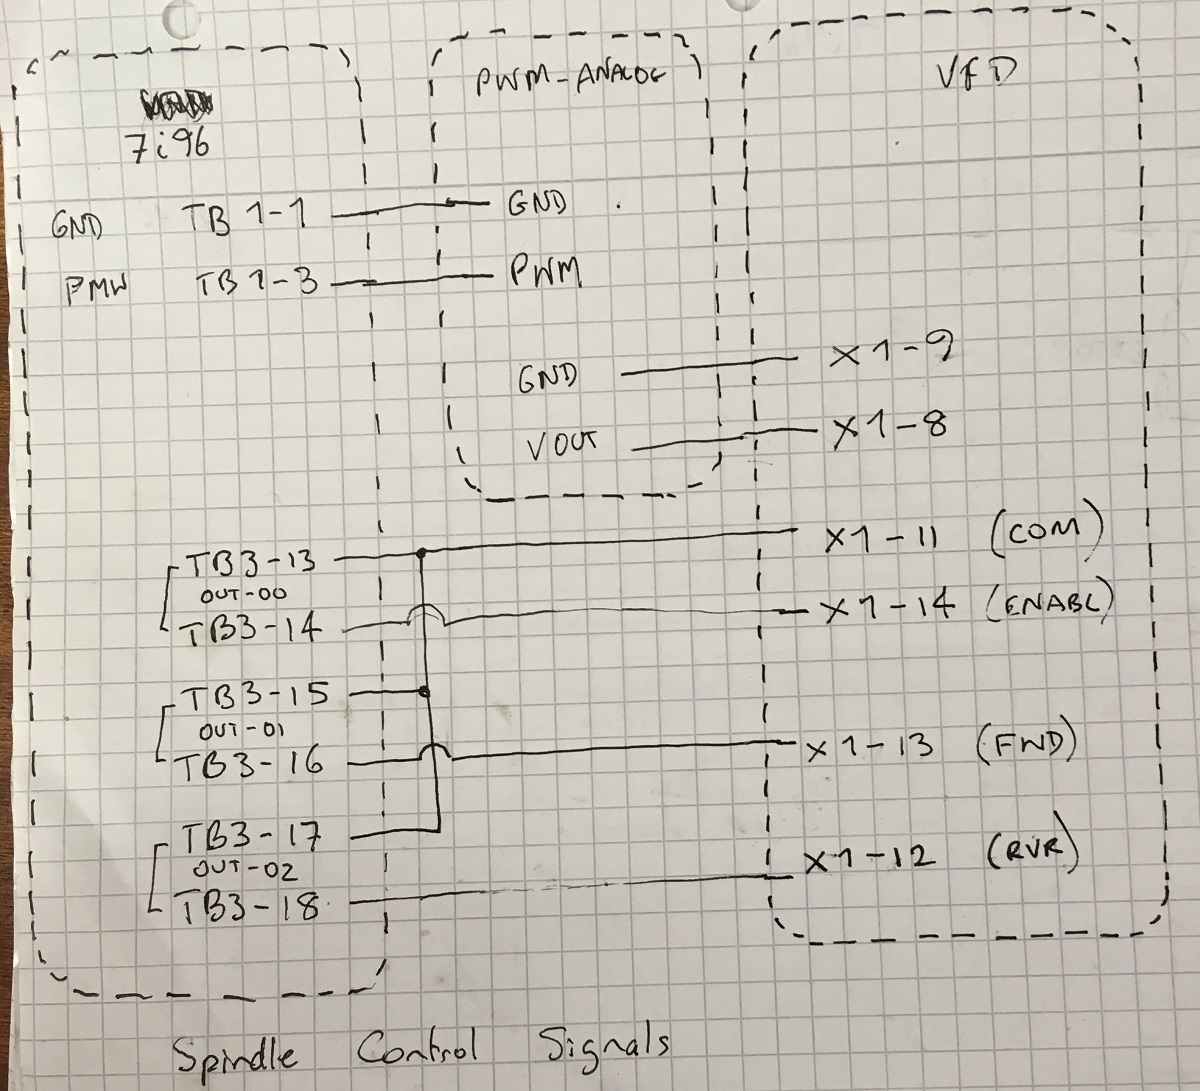 PWM-ANALOG
VFD
7i96
GND TB 1-1 GND
PMW TB 1-3 PWM
GND X1-9
VOUT X1-8
TB3-13 X1-11 (COM)
OUT-00
TB3-14 X1-14 (ENABL)
TB3-15
OUT-01
TB3-16 X1-13 (FWD)
TB3-17
OUT-02 X1-12 (RVR)
TB3-18
Spindle Control Signals